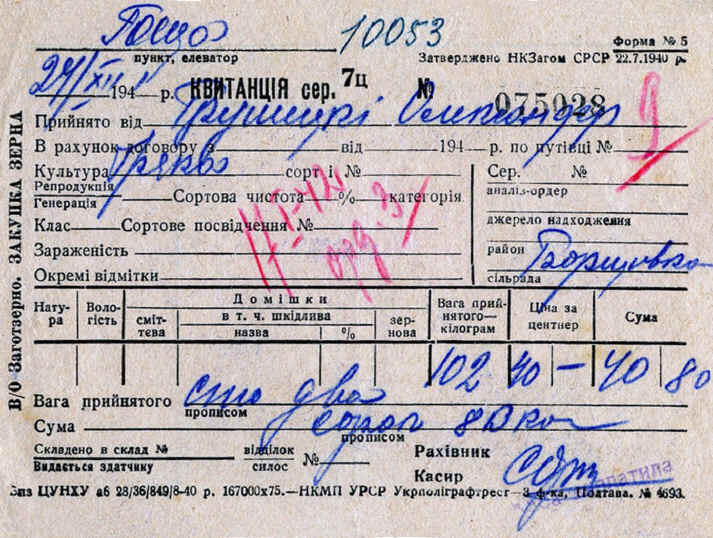 Гоща 10053 Форма № 5
пункт, елеватор Затверджено НКЗагом СРСР 22.7.1940 р.
24/XII 194 р. КВИТАНЦІЯ сер. 7ц № 075028
Прийнято від Олександр 9
В рахунок договору з від 194 р. по путівці №
Культура Гречка сорт і № Сер. №
Репродукція
Генерація Сортова чистота % категорія аналіз-ордер
Клас Сортове посвідчення № джерело надходження
Зараженість район
Окремі відмітки сільрада
В/О Заготзерно. ЗАКУПКА ЗЕРНА
Натура Вологість Домішки Вага прийнятого—кілограм Ціна за центнер Сума
сміттєва в т. ч. шкідлива зернова
назва %
102 40 — 40 80
Вага прийнятого сто два
прописом
Сума сорок 80 коп
прописом
Складено в склад № відділок № Рахівник
Видається здатчику силос Касир
Зпз ЦУНХУ аб 28/36/849/8-40 р. 167000х75.—НКМП УРСР Укрполіграфтрест—3 ф-ка, Полтава. № 4693.